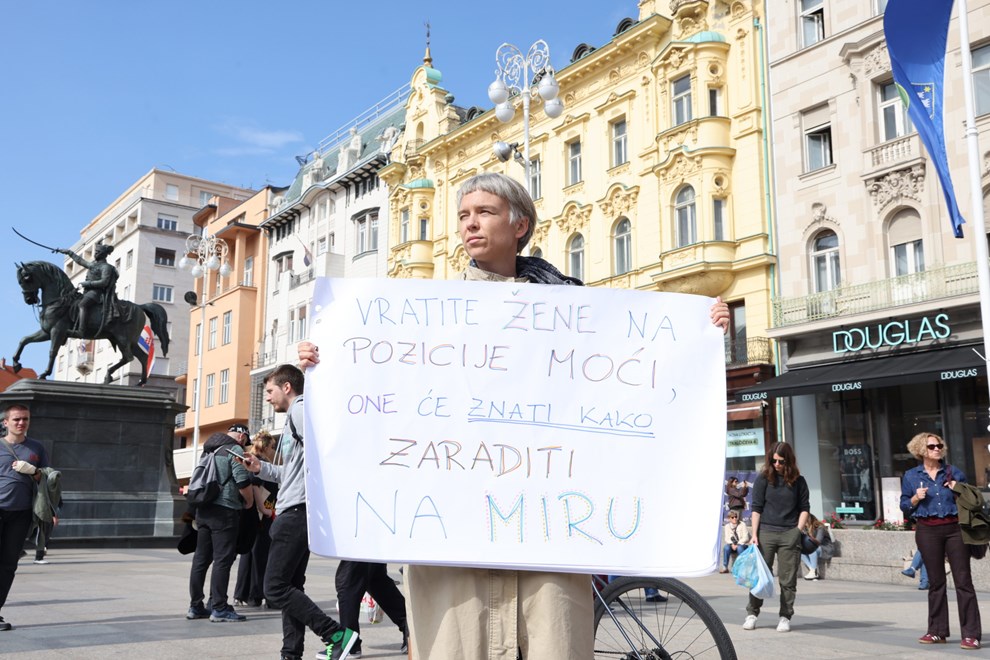 VRATITE ŽENE NA
POZICIJE MOĆI,
ONE ĆE ZNATI KAKO
ZARADITI
NA MIRU
DOUGLAS
DOUGLAS
DOUGLAS
DOUGLAS
BOSS